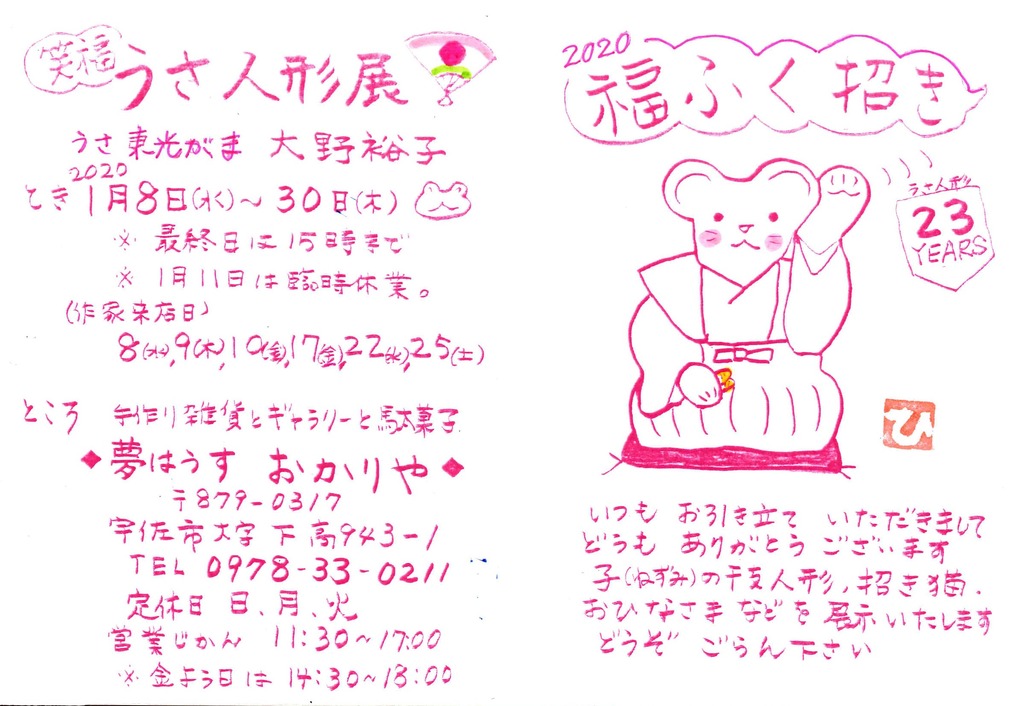 笑福
うさ人形展
うさ東光がま 大野裕子
2020
とき 1月8日(水)~30日(木)
※ 最終日は15時まで
※ 1月11日は臨時休業。
(作家来店日)
8(水),9(木),10(金),17(金),22(水),25(土)
ところ 手作り雑貨とギャラリーと駄菓子
◆夢はうす おかりや◆
〒879-0317
宇佐市大字下高943-1
TEL 0978-33-0211
定休日 日、月、火
営業じかん 11:30~17:00
※金よう日は 14:30~18:00
2020
福ふく招き
うさ人形
23
YEARS
ひ
いつも お引き立て いただきまして
どうも ありがとう ございます
子(ねずみ)の干支人形,招き猫.
おひなさま などを 展示いたします
どうぞ ごらん下さい